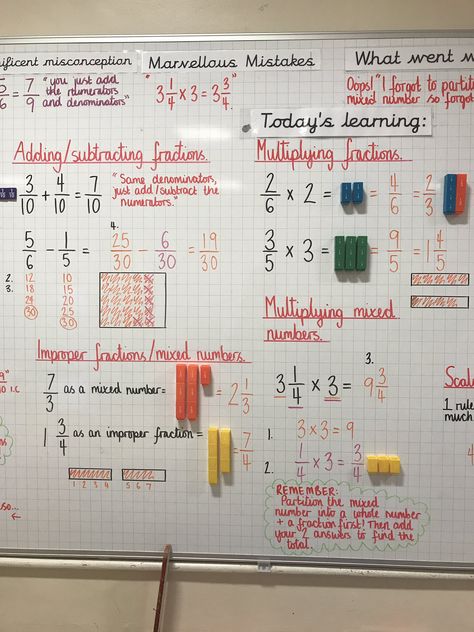 ificent misconception
Marvellous Mistakes
What went w
5/6 = 7/9 "you just add the numerators and denominators"
" 3 1/4 × 3 = 3 3/4 "
Oops! "I forgot to partit
mixed number so forgo
Today's learning:
Adding/subtracting fractions.
3/10 + 4/10 = 7/10
"Same denominators,
just add/subtract the
numerators."
5/6 - 1/5 = 25/30 - 6/30 = 19/30
4.
2. 12 10
3. 18 15
24 20
30 25
30
Improper fractions/mixed numbers.
7/3 as a mixed number = = 2 1/3
1 3/4 as an improper fraction = = 7/4
1 2 3 4 5 6 7
Multiplying fractions.
2/6 × 2 = = 4/6 = 2/3
3/5 × 3 = = 9/5 = 1 4/5
Multiplying mixed
numbers.
3.
3 1/4 × 3 = 9 3/4
1. 3 × 3 = 9
2. 1/4 × 3 = 3/4
REMEMBER:
Partition the mixed
number into a whole number
+ a fraction first! Then add
your 2 answers to find the
total.
Scale
1 rule
much